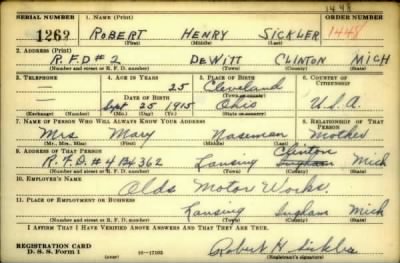 1448
SERIAL NUMBER 1. NAME (Print) ORDER NUMBER
1262 ROBERT HENRY SICKLER 1448
(First) (Middle) (Last)
2. ADDRESS (Print)
R.F.D # 2 DEWITT CLINTON MICH
(Number and street or R. F. D. number) (Town) (County) (State)
3. TELEPHONE 4. AGE IN YEARS 5. PLACE OF BIRTH 6. COUNTRY OF CITIZENSHIP
— 25 Cleveland
DATE OF BIRTH (Town or county)
— Sept 25 1915 Ohio U.S.A.
(Exchange) (Number) (Mo.) (Day) (Yr.) (State or country)
7. NAME OF PERSON WHO WILL ALWAYS KNOW YOUR ADDRESS 8. RELATIONSHIP OF THAT PERSON
Mrs Mary Naseman Mother
(Mr., Mrs., Miss) (First) (Middle) (Last)
9. ADDRESS OF THAT PERSON Clinton
R.F.D. # 4 B 362 Lansing Ingham Mich
(Number and street or R. F. D. number) (Town) (County) (State)
10. EMPLOYER'S NAME
Olds Motor Works.
11. PLACE OF EMPLOYMENT OR BUSINESS
Lansing Ingham Mich
(Number and street or R. F. D. number) (Town) (County) (State)
I AFFIRM THAT I HAVE VERIFIED ABOVE ANSWERS AND THAT THEY ARE TRUE.
REGISTRATION CARD
D. S. S. Form 1 (over) 16—17105 Robert H Sickler
(Registrant's signature)